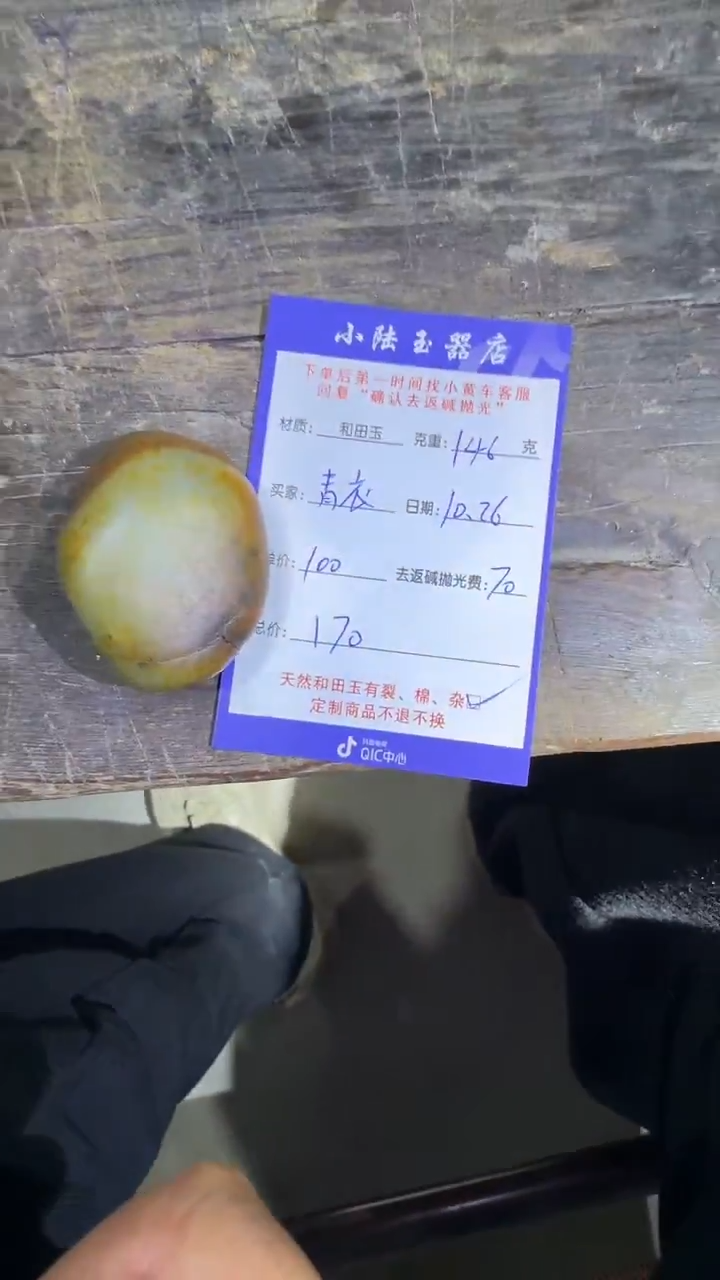 小陆玉器店
下单后第一时间找小黄车客服
回复“确认去返碱抛光”
材质: 和田玉 克重: 146 克
买家: 青衣 日期: 10.26
价: 100 去返碱抛光费: 70
总价: 170
天然和田玉有裂、棉、杂
定制商品不退不换
抖音电商
QIC中心